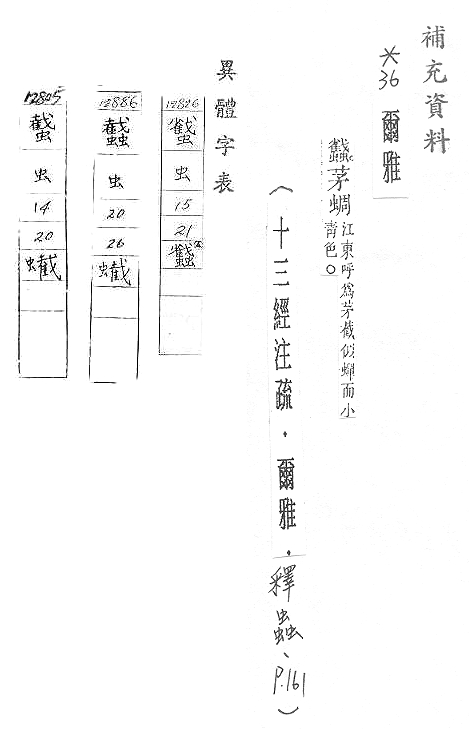 補充資料
*36 爾雅
蠽茅蜩
江東呼爲茅截似蟬而小
青色○
(十三經注疏．爾雅．釋蟲、P.161)
異體字表
12826
虫
15
21
12886
蠽
虫
20
26
蠘
12805
虫
14
20
蠘